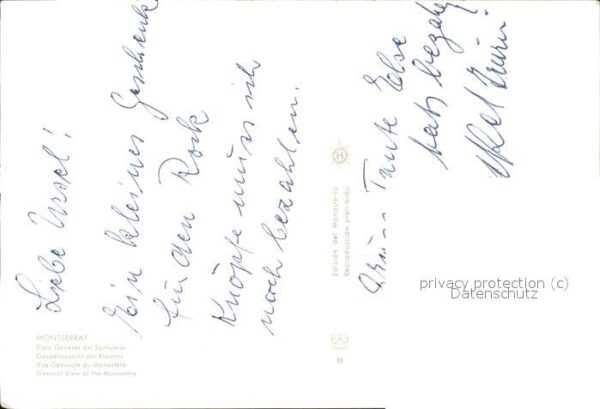 Liebe Ursel!
Ein kleines Geschenk
für den Rock
Knöpfe muss ich
noch bezahlen.
Tante Else
hat bezahlt
MONTSERRAT
Vista General del Santuario
Gesamtansicht des Klosters
Vue Générale du Monastère
General View of the Monastery
Edición del Monasterio
Reproducción prohibida
H
privacy protection (c)
Datenschutz